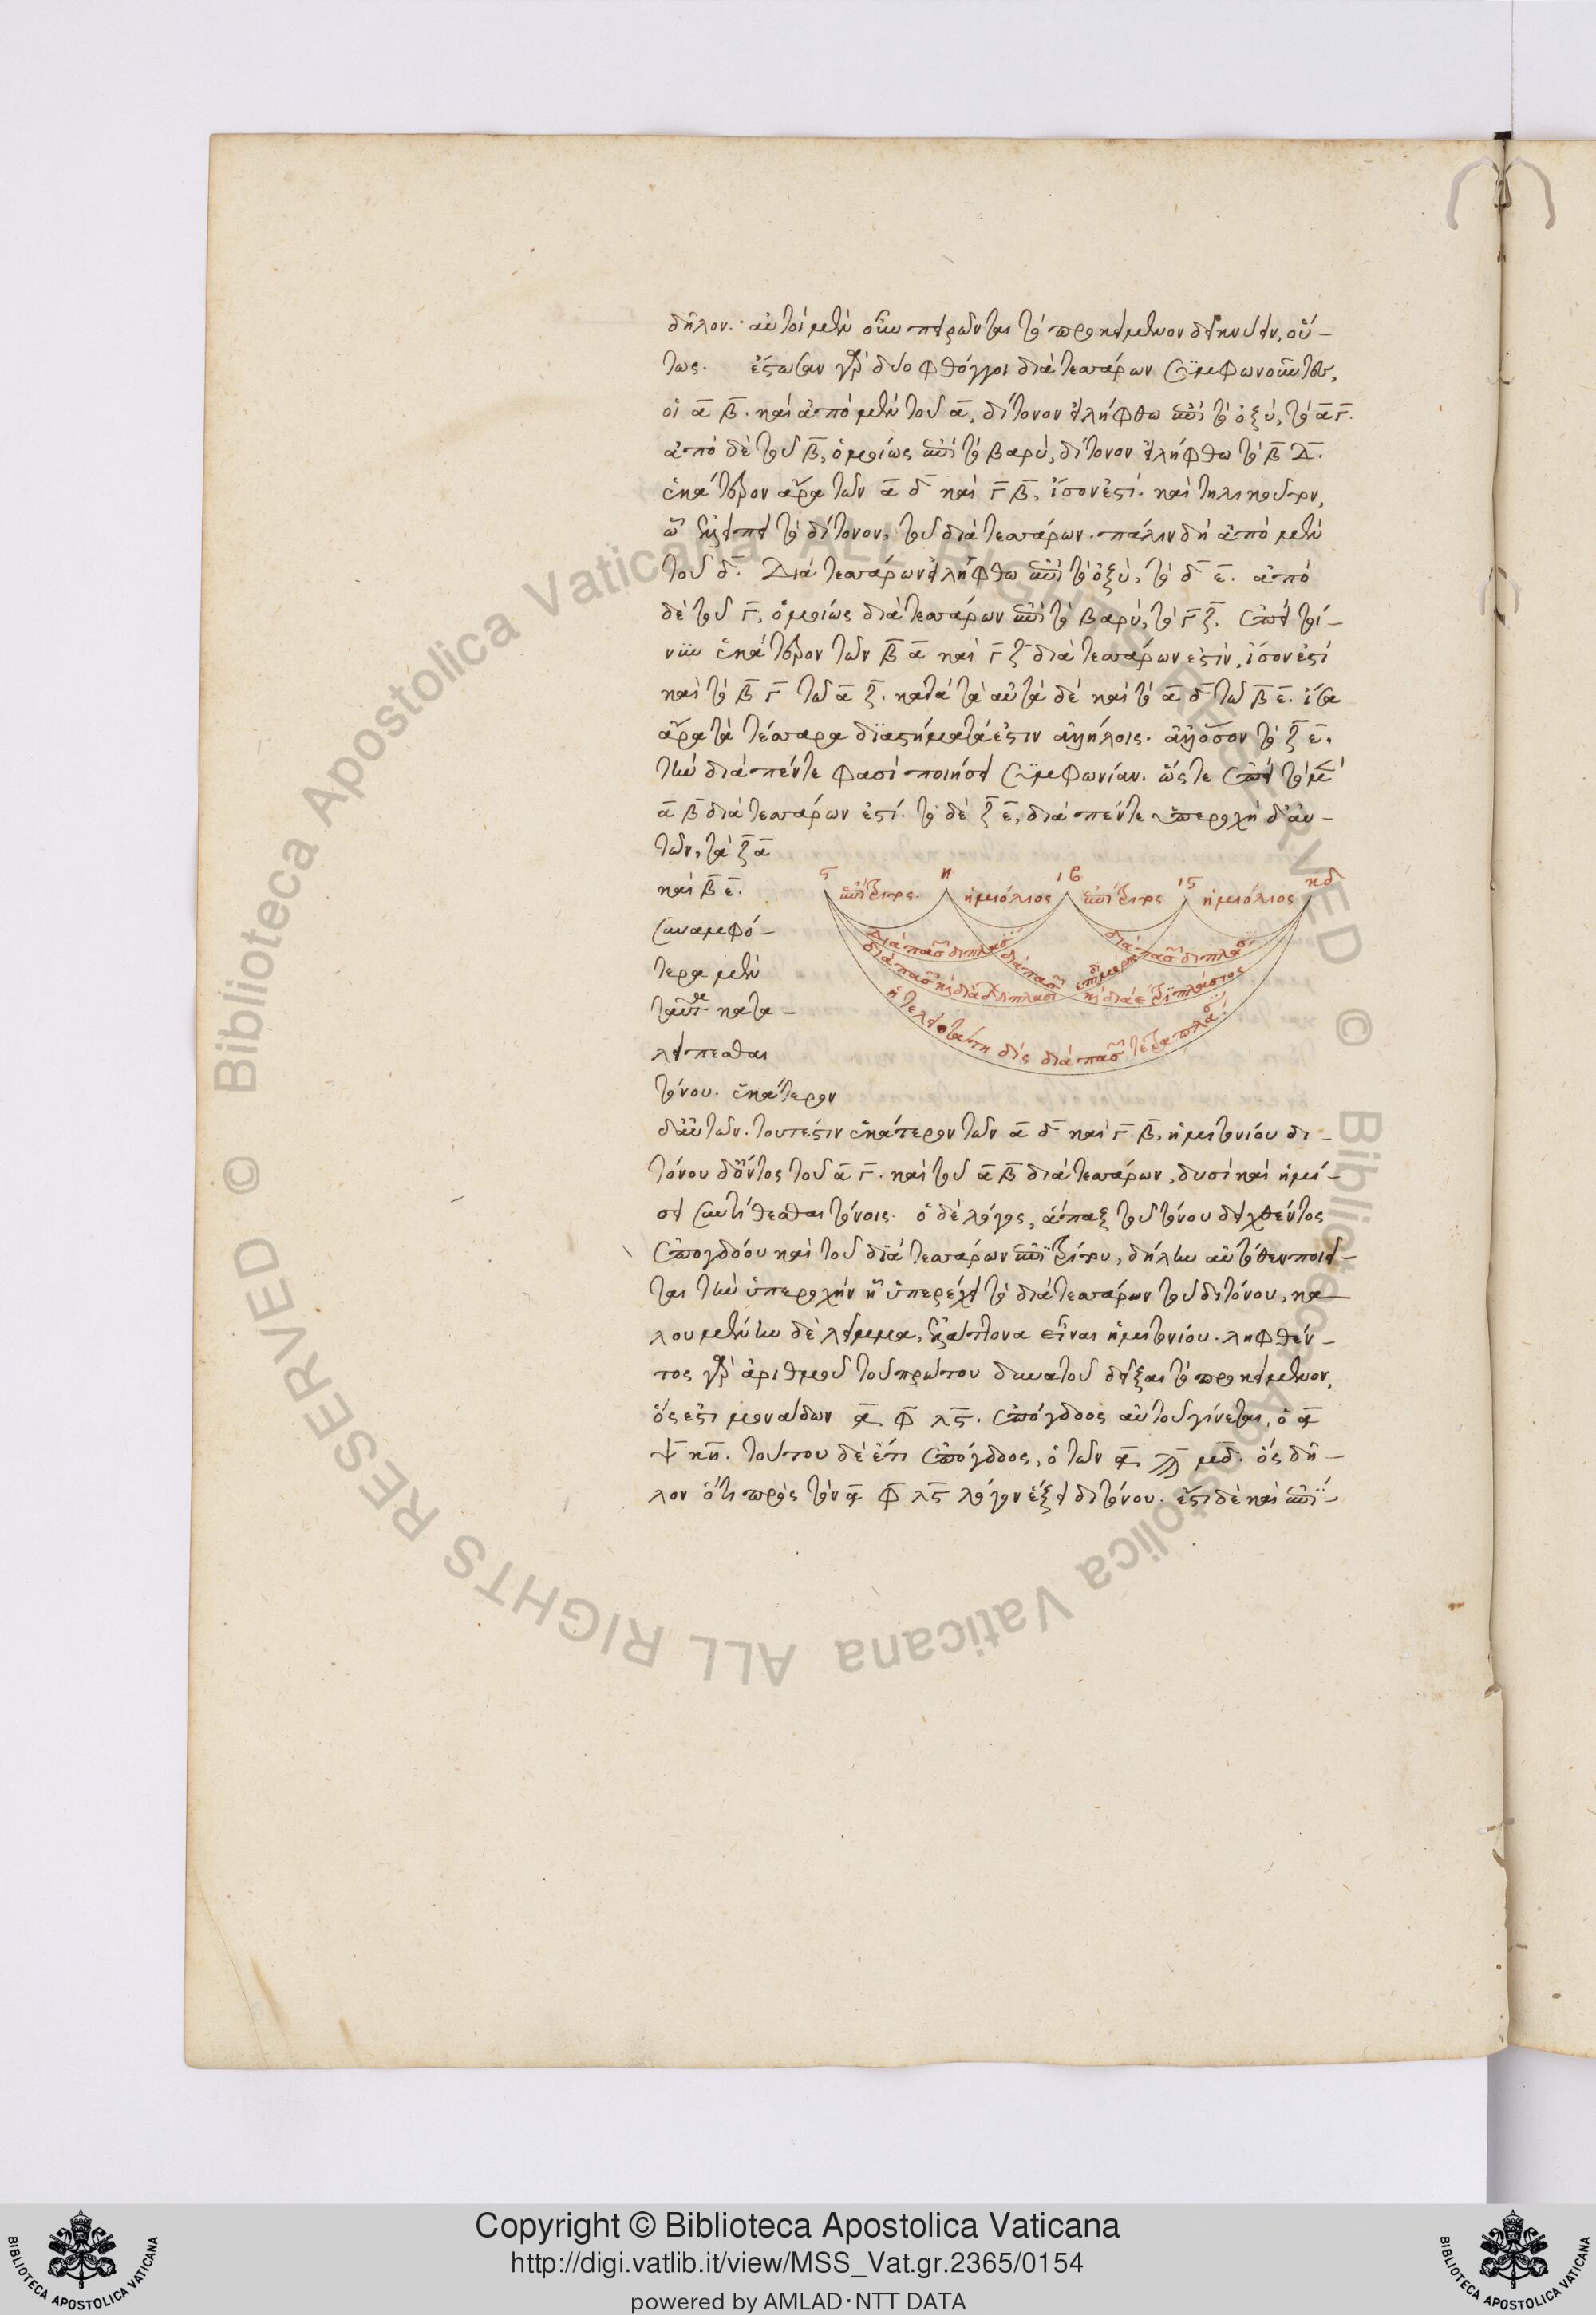 δῆλον. αὐτοὶ μὲν οὖν πειρῶνται τὸ προκείμενον δεικνύειν, οὕ-
τως. ἔστωσαν γὰρ δύο φθόγγοι διὰ τεσσάρων συμφωνοῦντες,
οἱ α̅ β̅. καὶ ἀπὸ μὲν τοῦ α̅, δίτονον εἰλήφθω ἐπὶ τὸ ὀξύ, τὸ α̅ γ̅.
ἀπὸ δὲ τοῦ β̅, ὁμοίως ἐπὶ τὸ βαρύ, δίτονον εἰλήφθω τὸ β̅ δ̅.
ἑκάτερον ἄρα τῶν α̅ δ̅ καὶ γ̅ β̅, ἴσον ἐστί. καὶ τηλικοῦτον,
ᾧ ἐλλείπει τὸ δίτονον, τοῦ διὰ τεσσάρων. πάλιν δὴ ἀπὸ μὲν
τοῦ δ̅. διὰ τεσσάρων εἰλήφθω ἐπὶ τὸ ὀξύ, τὸ δ̅ ε̅. ἀπὸ
δὲ τοῦ γ̅, ὁμοίως διὰ τεσσάρων ἐπὶ τὸ βαρύ, τὸ γ̅ ζ̅. ἐπεὶ τοί-
νυν ἑκάτερον τῶν β̅ α̅ καὶ γ̅ ζ̅ διὰ τεσσάρων ἐστίν, ἴσον ἐστὶ
καὶ τὸ β̅ γ̅ τῷ α̅ ζ̅. κατὰ τὰ αὐτὰ δὲ καὶ τὸ α̅ δ̅ τῷ β̅ ε̅. ἴσα
ἄρα τὰ τέσσαρα διαστήματά ἐστιν ἀλλήλοις. ἀλλ' ὅσον τὸ ζ̅ ε̅.
τὴν διὰ πέντε φασὶ ποιήσει συμφωνίαν. ὥστε ἐπεὶ τὸ μὲν
α̅ β̅ διὰ τεσσάρων ἐστί. τὸ δὲ ζ̅ ε̅, διὰ πέντε ὑπεροχὴ δ' αὐ-
τῶν, τὰ ζ̅ α̅
καὶ β̅ ε̅.
συναμφό-
τερα μὲν
ταῦτα κατα-
λείπεσθαι
τόνου. ἑκάτερον
δ' αὐτῶν. τουτέστιν ἑκάτερον τῶν α̅ δ̅ καὶ γ̅ β̅, ἡμιτονίου δι-
τόνου δ' ὄντος τοῦ α̅ γ̅. καὶ τοῦ α̅ β̅ διὰ τεσσάρων, δυσὶ καὶ ἡμί-
σει συντίθεσθαι τόνοις. ὁ δὲ λόγος, ἅπαξ τοῦ τόνου δειχθέντος
ἐπογδόου καὶ τοῦ διὰ τεσσάρων ἐπιτρίτου, δήλην αὐτόθεν ποιεῖ-
ται τὴν ὑπεροχὴν ᾗ ὑπερέχει τὸ διὰ τεσσάρων τοῦ διτόνου, κα-
λουμένην δὲ λεῖμμα, ἐλάττονα εἶναι ἡμιτονίου. ληφθέν-
τος γὰρ ἀριθμοῦ τοῦ πρώτου δυνατοῦ δεῖξαι τὸ προκείμενον,
ὅς ἐστι μονάδων ͵α φ̅ λ̅ς̅. ἐπόγδοος αὐτοῦ γίνεται, ὁ ͵α
ψ̅ κ̅η̅. τούτου δὲ ἔτι ἐπόγδοος, ὁ τῶν ͵α ϡ̅ μ̅δ̅. ὃς δῆ-
λον ὅτι πρὸς τὸν ͵α φ̅ λ̅ς̅ λόγον ἕξει διτόνου. ἔστι δὲ καὶ ἐπί-
ς η ιβ ις κδ
ἐπίτριτος. ἡμιόλιος ἐπίτριτος ἡμιόλιος
διὰ πασῶν διπλάσι
διὰ πασῶν διπλάσι
διὰ πασῶν
διὰ πασῶν καὶ διὰ δ διπλασι
καὶ διὰ ε τριπλάσιος
ἡ τελειοτάτη δὶς διὰ πασῶν τετραπλάσι
Copyright © Biblioteca Apostolica Vaticana
http://digi.vatlib.it/view/MSS_Vat.gr.2365/0154
powered by AMLAD·NTT DATA